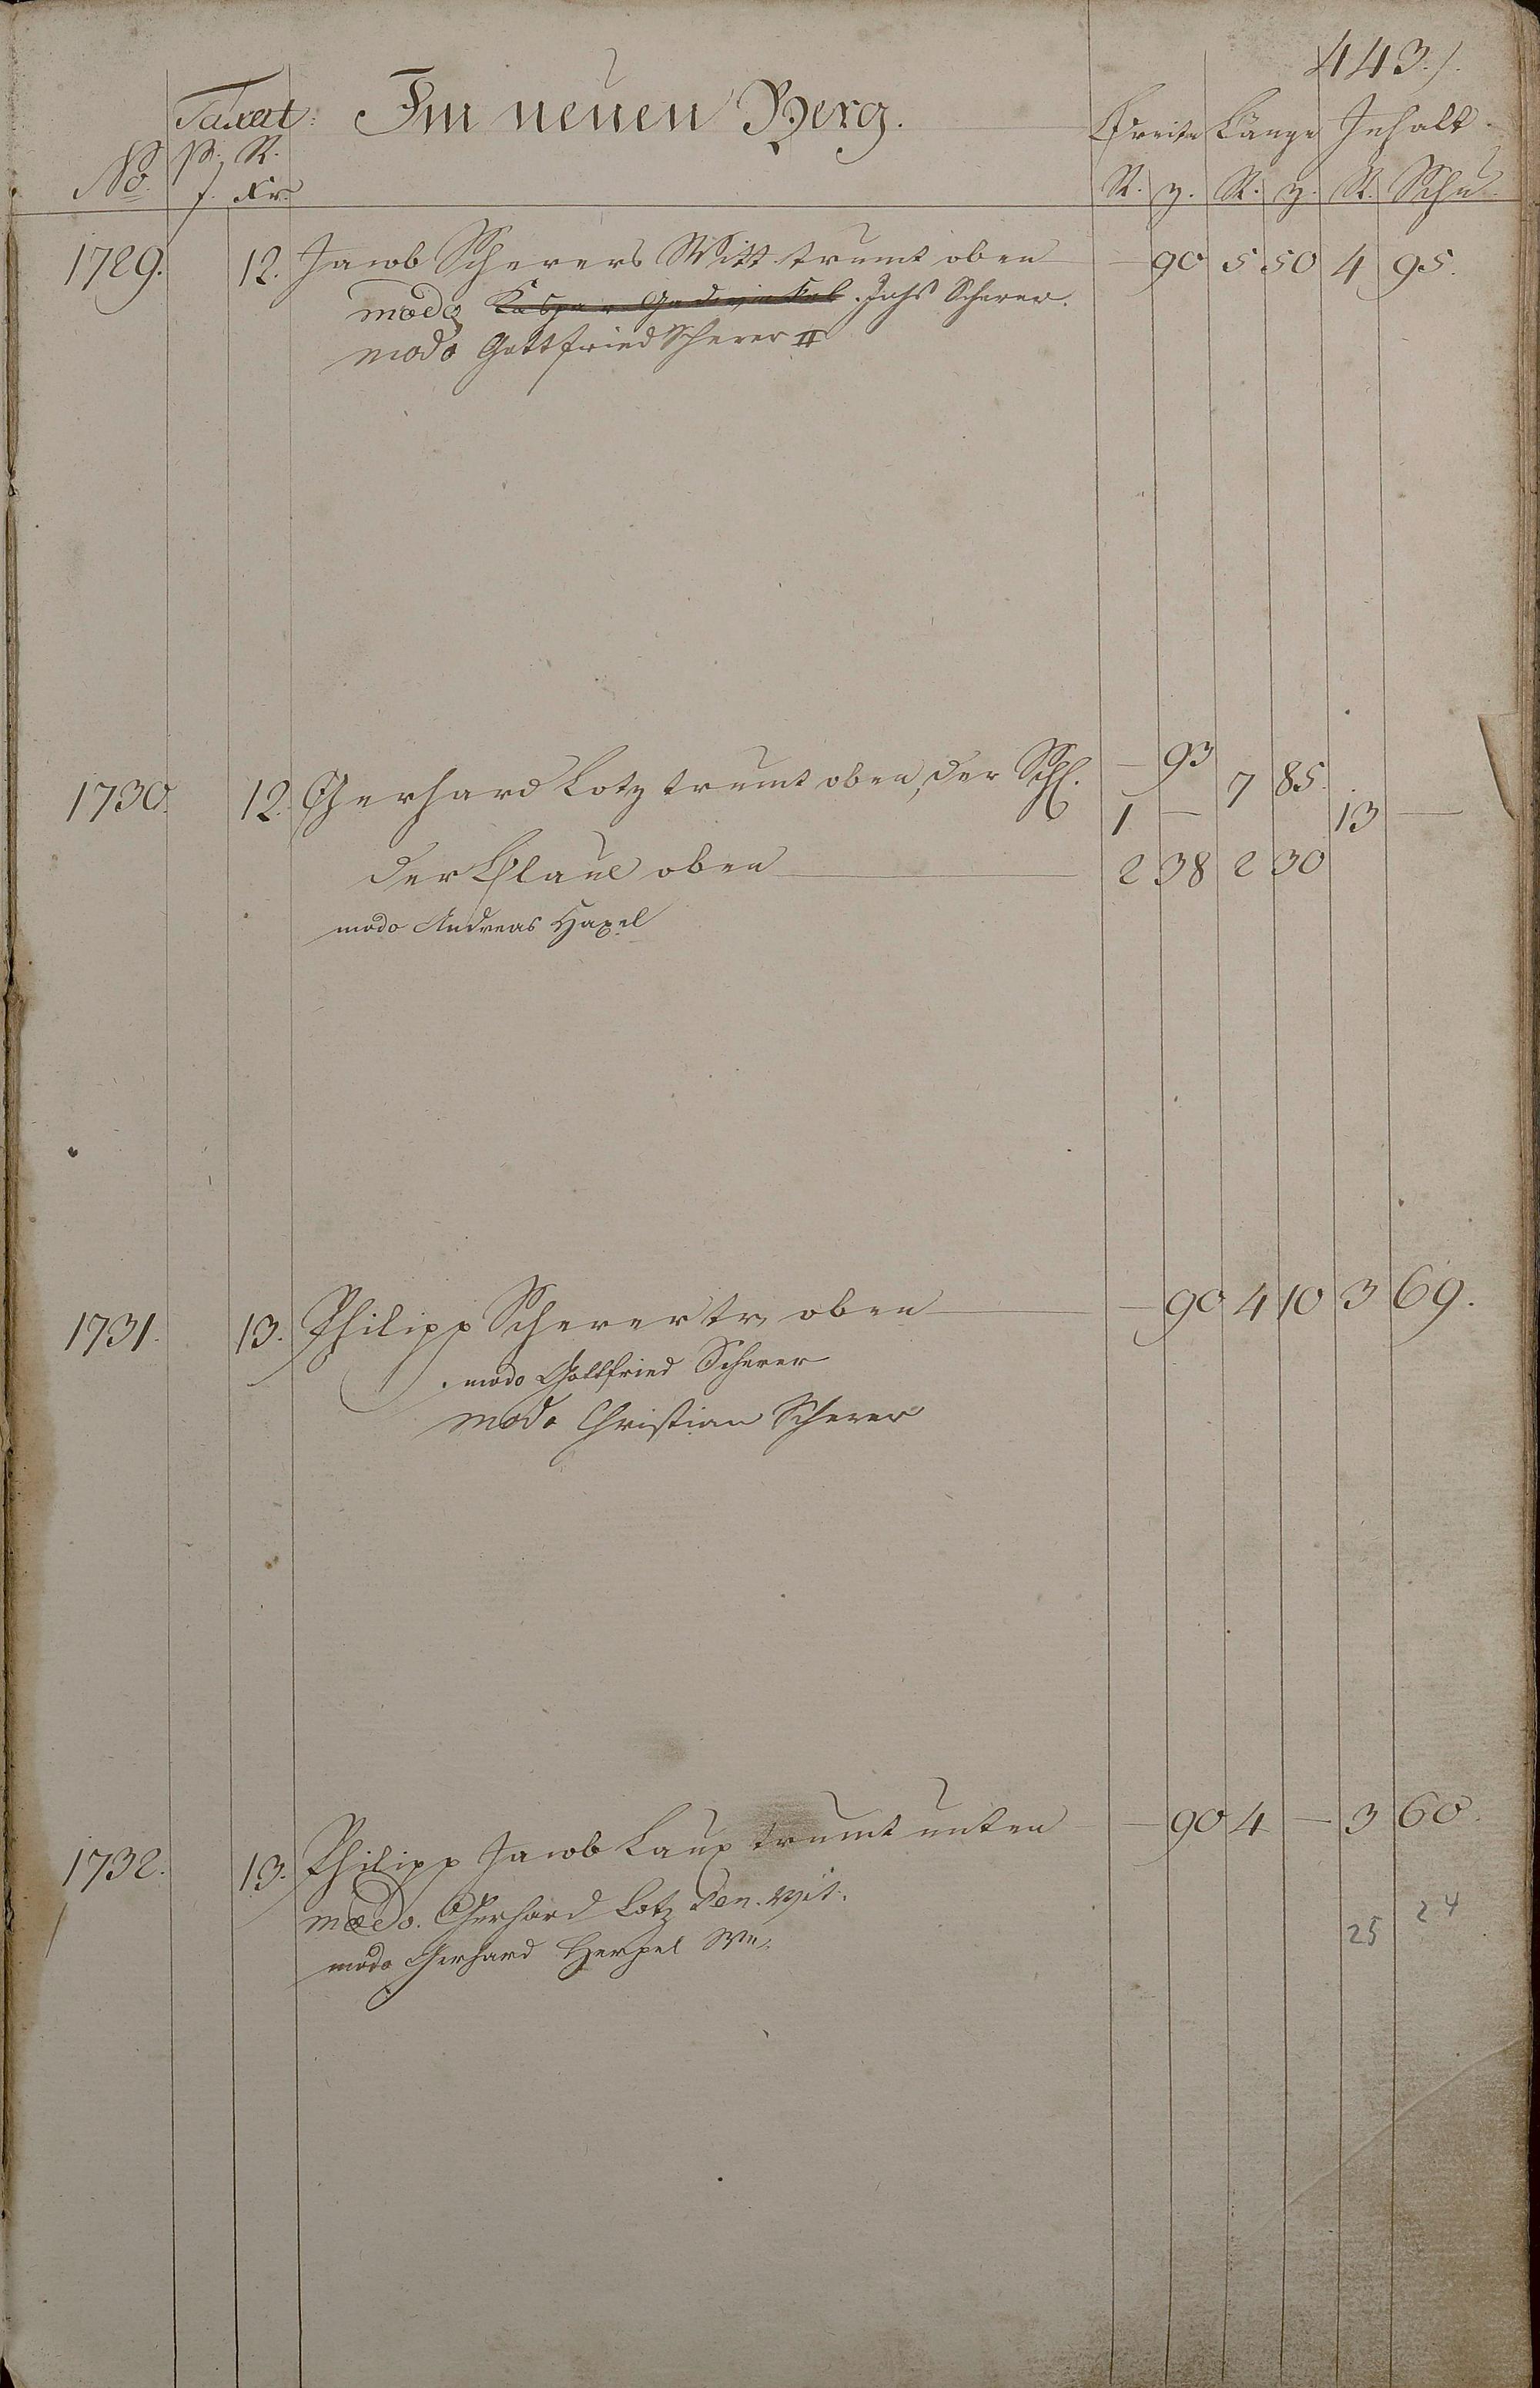 443./.
Taxat: Im neuen Berg. Breite Länge Inhalt.
No. p. R. R. z. R. z. R. Schu
f. Xr.
1729. 12. Jacob Scherers Witt trumt oben — 90 5 50 4 95.
modo Johs Scherer.
modo Gottfried Scherer II
1730. 12. Gerhard Lotz trumt oben, der Schl. — 93 7 85. 13 —
1 —
der Klaul oben — 2 38 2 30
modo Andreas Haxel
1731. 13. Philipp Scherer tr, oben — 90 4 10 3 69.
modo Gottfried Scherer
modo Christian Scherer
1732. 13. Philipp Jacob Laux trumt unten — 90 4 — 3 60.
modo. Gerhard Lotz den. Wit.
modo Gerhard Herpel We.
25 24